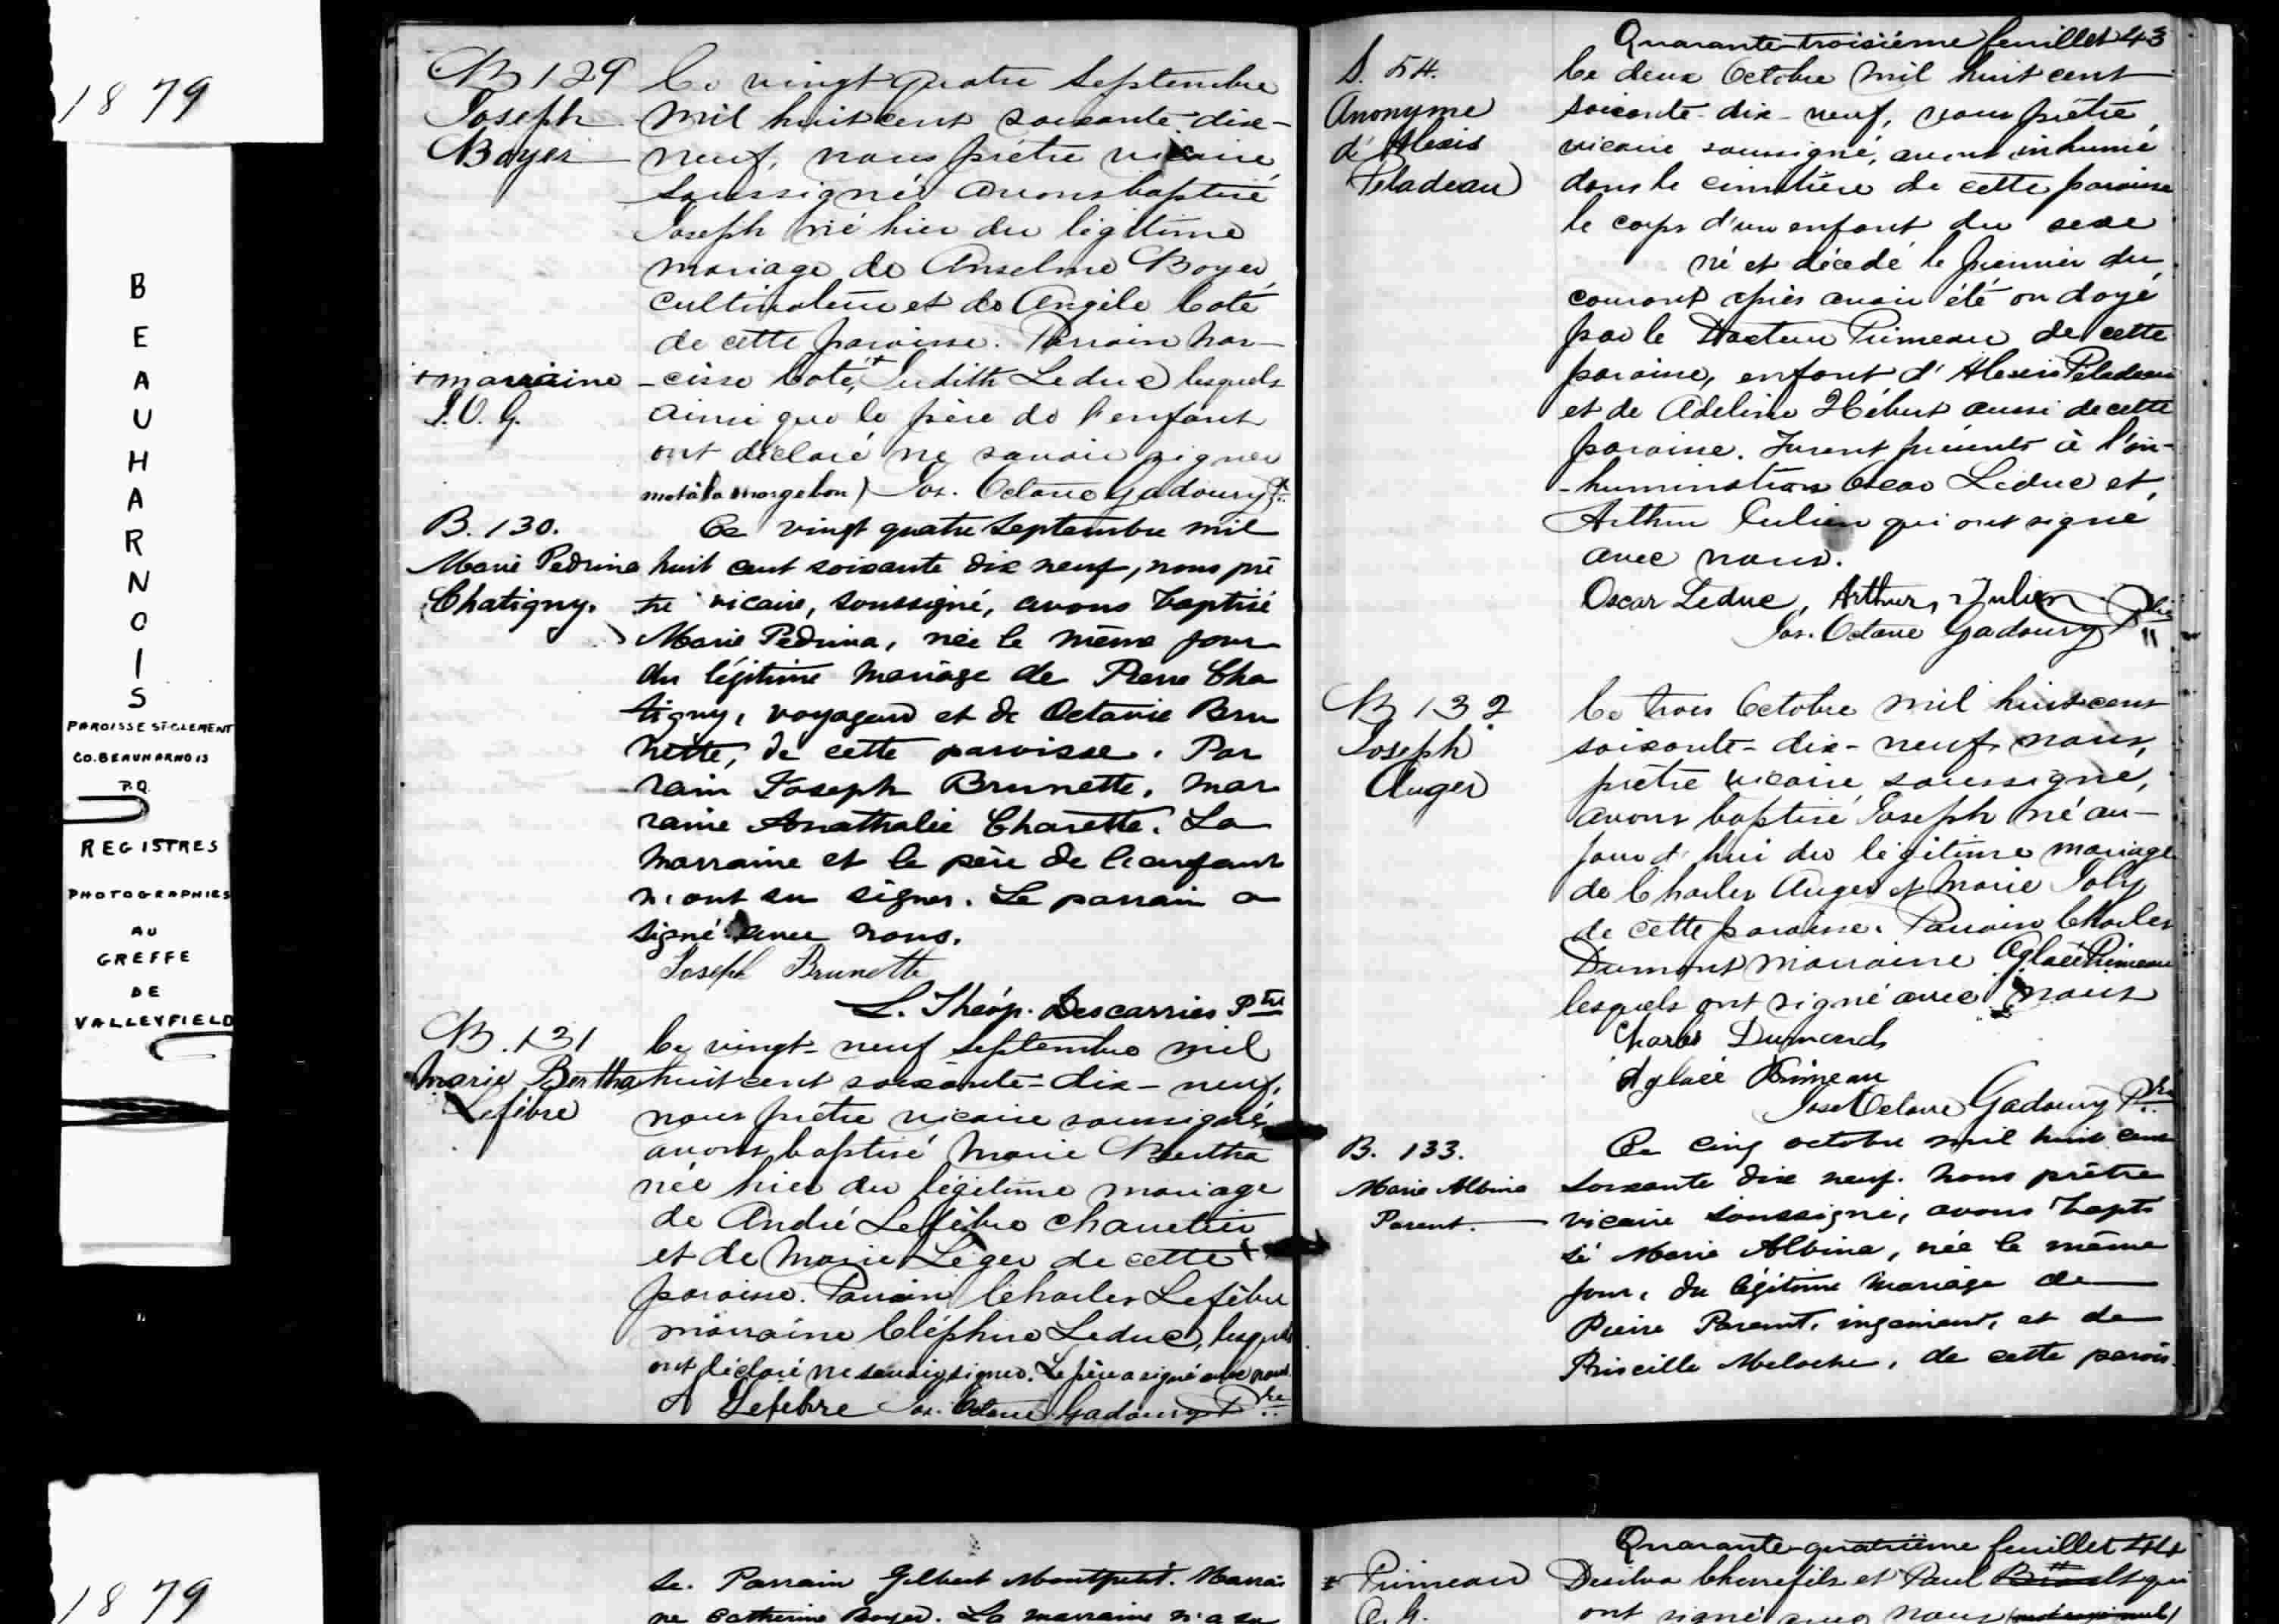 1879
BEAUHARNOIS
PAROISSE ST-CLEMENT
CO. BEAUHARNOIS
P.Q.
REGISTRES
PHOTOGRAPHIES
AU
GREFFE
DE
VALLEYFIELD
B 129
Joseph
Boyer
+ marraine
J. O. G.
Ce vingt quatre Septembre
mil huit cent soixante-dix-
neuf, nous prêtre vicaire
soussigné avons baptisé
Joseph né hier du légitime
mariage de Anselme Boyer
cultivateur et de Angèle Coté
de cette paroisse. Parrain Nar-
-cisse Coté,+ Judith Leduc lesquels
ainsi que le père de l'enfant
ont déclaré ne savoir signer
mot à la marge bon) Jos. Octave Gadoury Ptre
B. 130.
Marie Pedrina
Chatigny.
Ce vingt quatre Septembre mil
huit cent soixante dix neuf, nous prê
tre vicaire, soussigné, avons baptisé
Marie Pedrina, née le même jour
du légitime mariage de Pierre Cha
tigny, voyageur et de Octavie Bru
nette, de cette paroisse. Par
rain Joseph Brunette, mar
raine Anathalie Charette. La
marraine et le père de l'enfant
n'ont su signer. Le parrain a
signé avec nous.
Joseph Brunette
L. Théop. Descarries Ptre
B. 131
Marie Bertha
Lefebvre
Ce vingt-neuf septembre mil
huit cent soixante-dix-neuf,
nous prêtre vicaire soussigné,
avons baptisé Marie Bertha
née hier du légitime mariage
de André Lefèbvre charretier
et de Marie Léger de cette
paroisse. Parrain Charles Lefèbvre
marraine Cléphire Leduc, lesquels
ont déclaré ne savoir signer. Le père a signé avec nous.
A Lefebvre Jos. Octave Gadoury Ptre
Quarante-troisième feuillet 43
S. 54.
Anonyme
d'Alexis
Péladeau
Le deux Octobre mil huit cent
soixante-dix-neuf, nous prêtre
vicaire soussigné, avons inhumé
dans le cimetière de cette paroisse
le corps d'un enfant du sexe
né et décédé le premier du
courant après avoir été ondoyé
par le Docteur Primeau de cette
paroisse, enfant d'Alexis Péladeau
et de Adeline Hébert aussi de cette
paroisse. Furent présents à l'in-
-humination Oscar Leduc et
Arthur Julien qui ont signé
avec nous.
Oscar Leduc, Arthur Julien
Jos. Octave Gadoury Ptre
B 132
Joseph
Auger
Ce trois Octobre mil huit cent
soixante-dix-neuf, nous,
prêtre vicaire soussigné,
avons baptisé Joseph né au-
jourd'hui du légitime mariage
de Charles Auger et Marie Joly
de cette paroisse. Parrain Charles
Dumont marraine Aglaée Primeau
lesquels ont signé avec nous
Charles Dumond
Aglaée Primeau
Jos. Octave Gadoury Ptre
B. 133.
Marie Albina
Parent.
Ce cinq octobre mil huit cent
soixante dix neuf. Nous prêtre
vicaire soussigné, avons bapti
sé Marie Albina, née le même
jour, du légitime mariage de
Pierre Parent, ingénieur, et de
Priscille Meloche, de cette parois
1879
se. Parrain Gilbert Montpetit. Marrai
ne Catherine Boyer. La marraine n'a su
Quarante-quatrième feuillet 44
Primeau
O. G.
Desilva Chenefils et Paul
ont signé avec nous